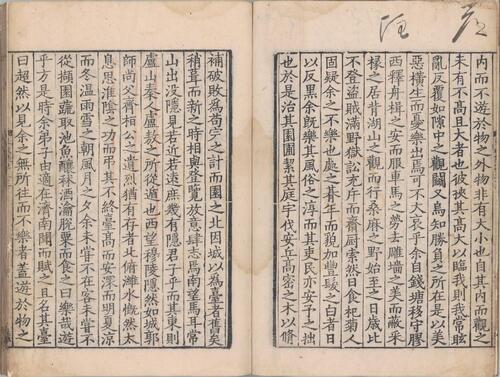 內而不遊於物之外物非有大小也自其內而觀之
未有不高且大者也彼挾其高大以臨我則我常眩
亂反覆如隙中之觀鬪又烏知勝負之所在是以美
惡橫生而憂樂出焉可不大哀乎余自錢塘移守膠
西釋舟楫之安而服車馬之勞去雕墻之美而蔽采
椽之居背湖山之觀而行桑麻之野始至之日歲比
不登盜賊滿野獄訟充斥而齋厨索然日食杞菊人
固疑余之不樂也處之朞年而貌加豐髮之白者日
以反黑余既樂其風俗之淳而其吏民亦安予之拙
也於是治其園圃絜其庭宇伐安丘高密之木以脩
補破敗爲苟完之計而園之北因城以爲臺者舊矣
稍葺而新之時相與登覽放意肆志焉南望馬耳常
山出沒隱見若近若遠庶幾有隱君子乎而其東則
盧山秦人盧敖之所從遁也西望穆陵隱然如城郭
師尚父齊桓公之遺烈猶有存者北俯濰水慨然太
息思淮陰之功而弔其不終臺高而安深而明夏涼
而冬溫雨雪之朝風月之夕余未甞不在客未甞不
從擷園蔬取池魚釀秫酒瀹脫粟而食之曰樂哉遊
乎方是時余弟子由適在濟南聞而賦之且名其臺
曰超然以見余之無所往而不樂者蓋遊於物之